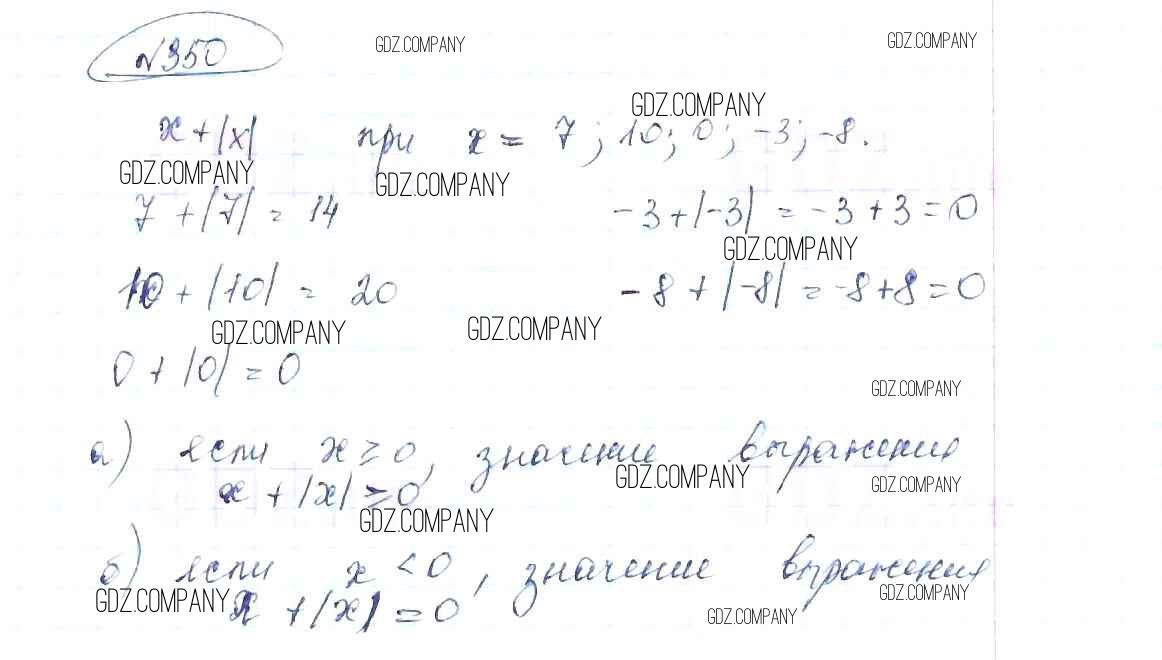 №350
GDZ.COMPANY
GDZ.COMPANY
GDZ.COMPANY
x + |x| при x = 7; 10; 0; -3; -8.
GDZ.COMPANY
GDZ.COMPANY
7 + |7| = 14
-3 + |-3| = -3 + 3 = 0
GDZ.COMPANY
10 + |10| = 20
-8 + |-8| = -8 + 8 = 0
GDZ.COMPANY
GDZ.COMPANY
0 + |0| = 0
GDZ.COMPANY
а) если x ≥ 0, значение выражения
GDZ.COMPANY
GDZ.COMPANY
x + |x| ≥ 0
GDZ.COMPANY
б) если x < 0, значение выражения
GDZ.COMPANY
GDZ.COMPANY
x + |x| = 0
GDZ.COMPANY